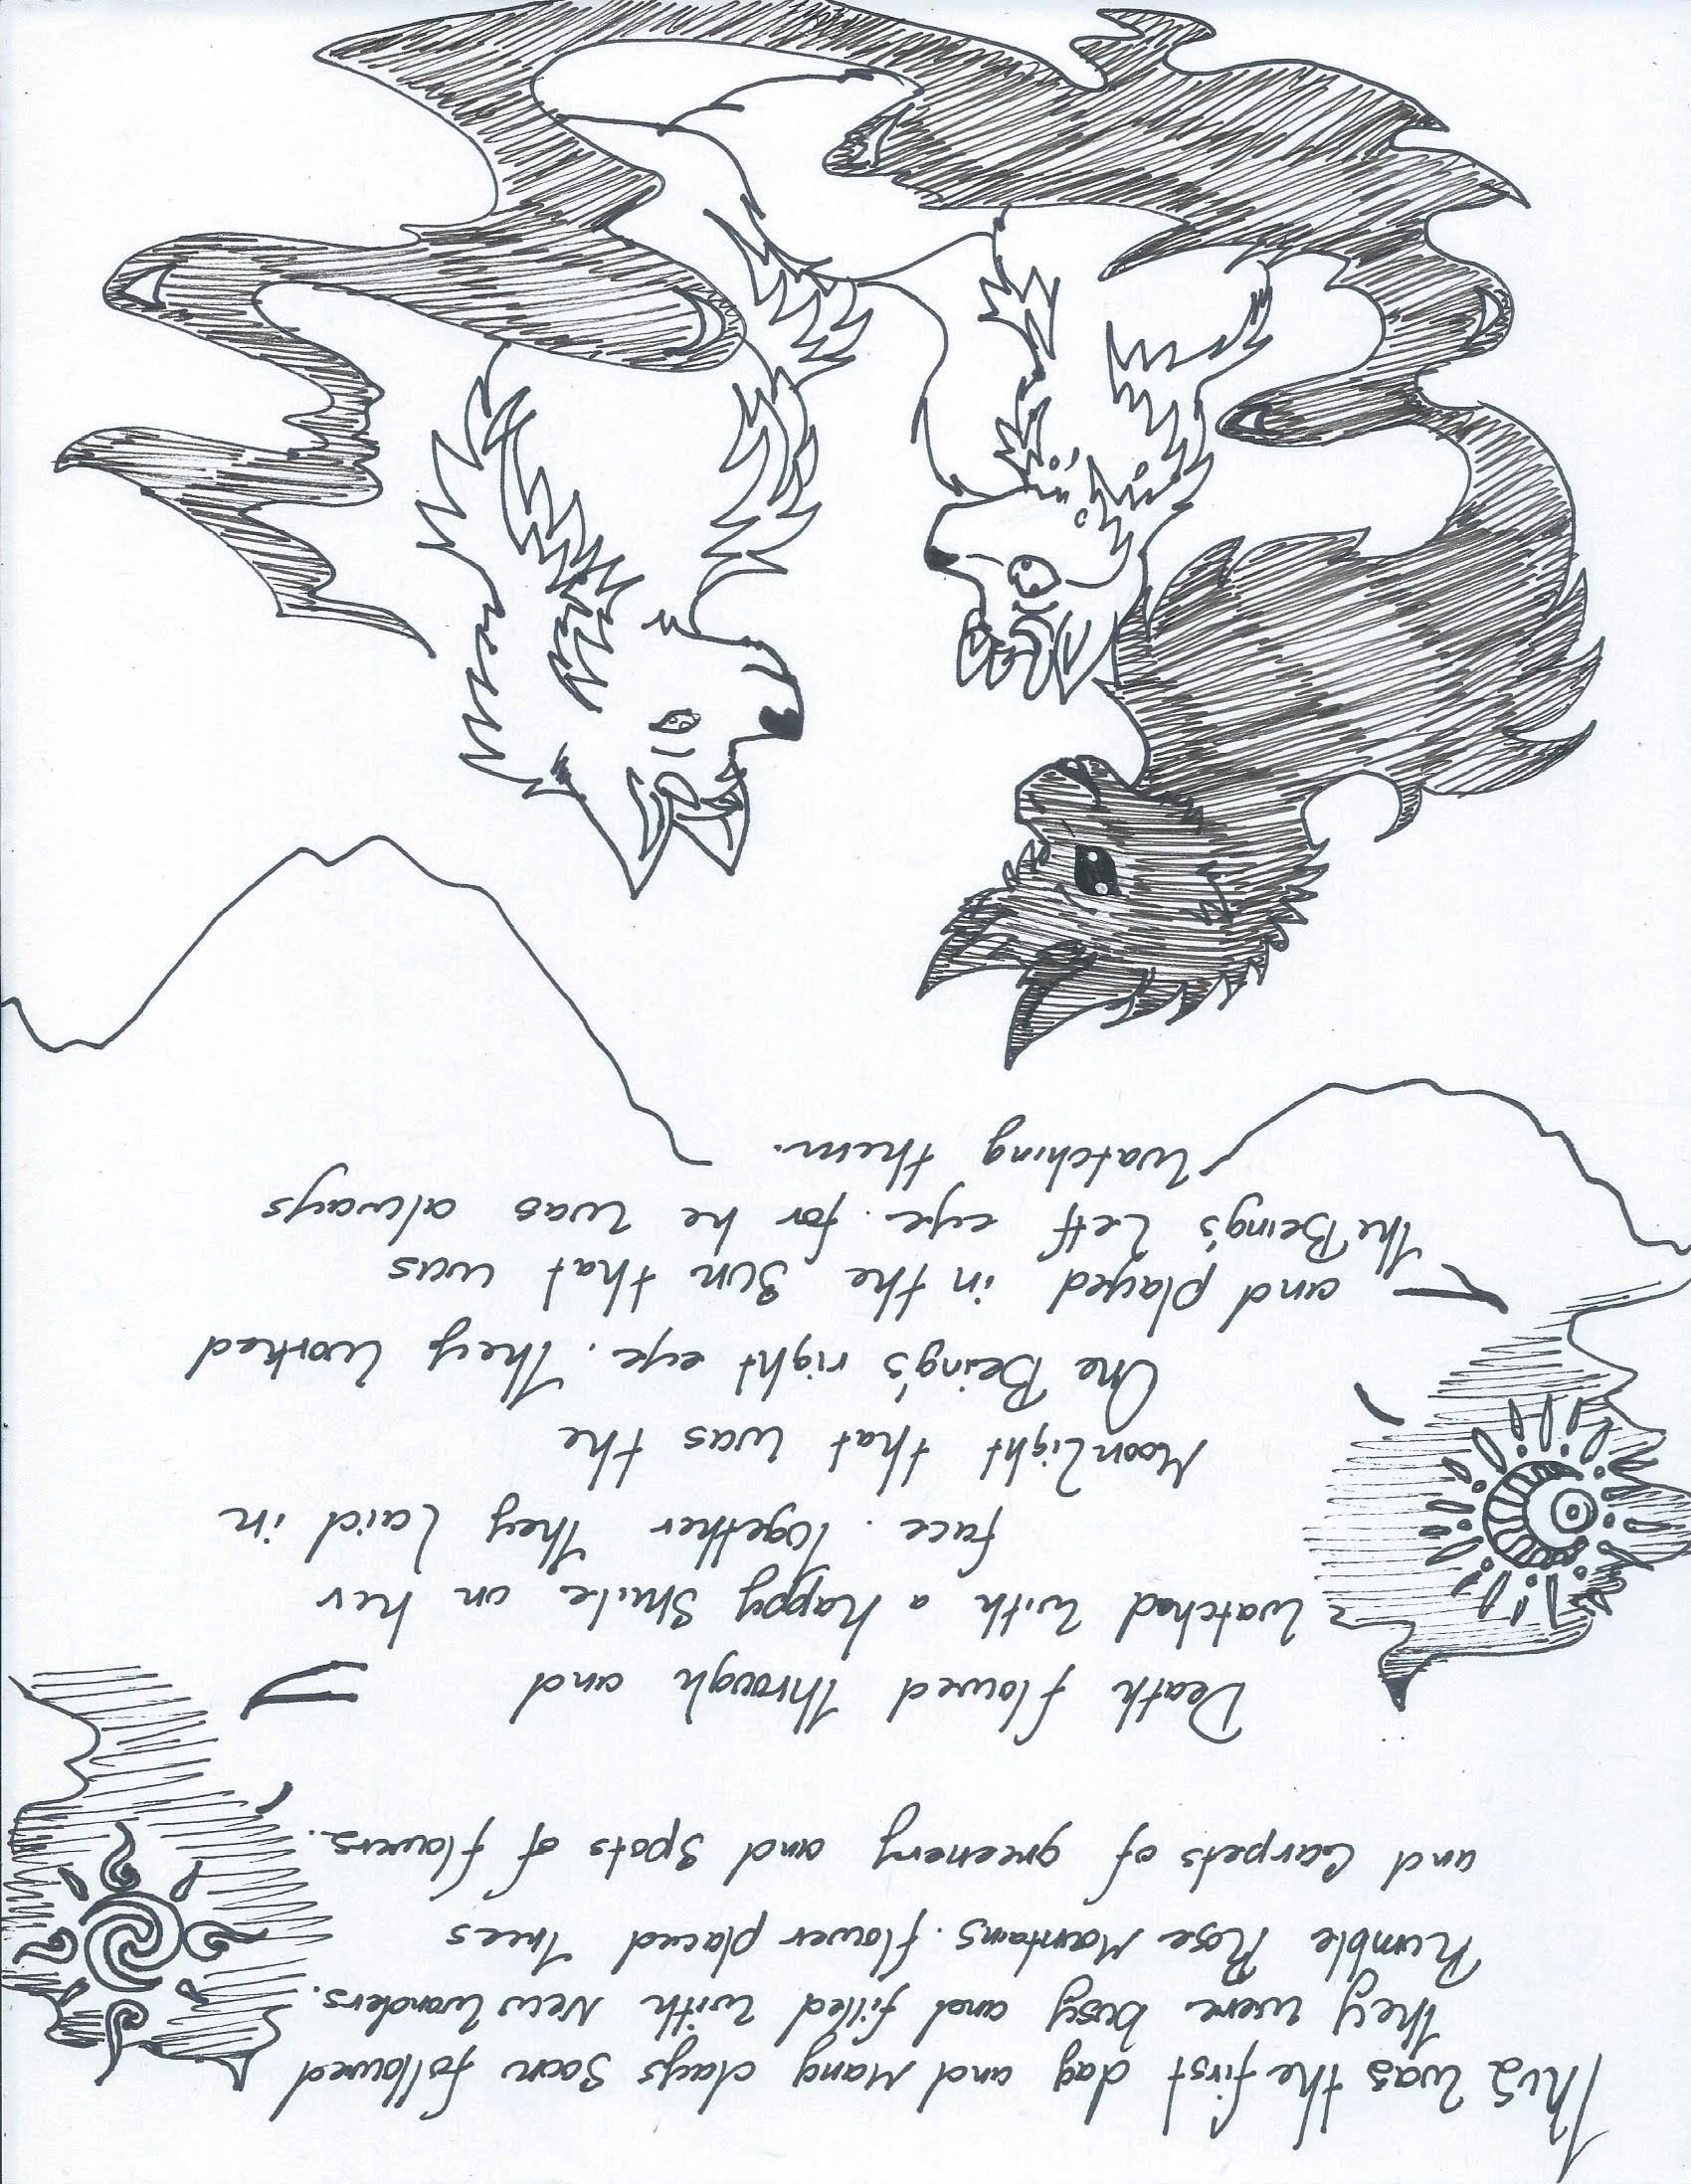 This was the first day and Many days soon followed
They were busy and filled with New Wonders.
Rumble Rose Mountains. flower placed Trees
and Carpets of greenery and Spots of flowers.
Death flowed through and
Watched with a happy Smile on her
face. Together They Laid in
MoonLight that was the
One Being's right eye. They Worked
and played in the Sun that was
The Being's Left eye. for he was always
Watching them.